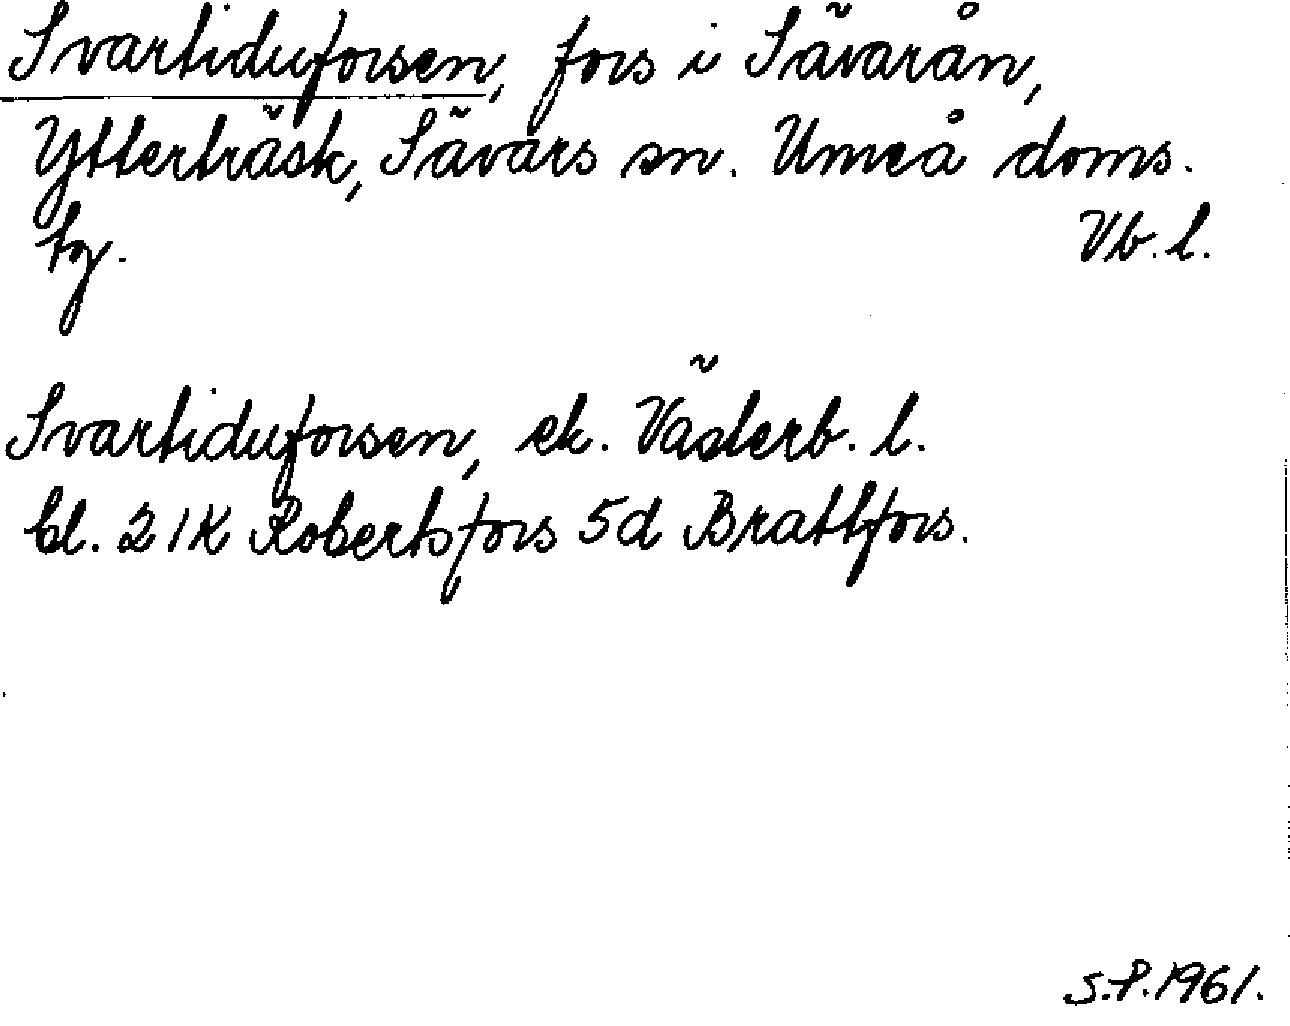 Svartiduforsen, fors i Sävarån,
Ytterträsk, Sävars sn. Umeå doms.
hg. Vb. l.
Svartiduforsen, ek. Västerb. l.
bl. 21K Robertsfors 5d Brattfors.
S.P. 1961.